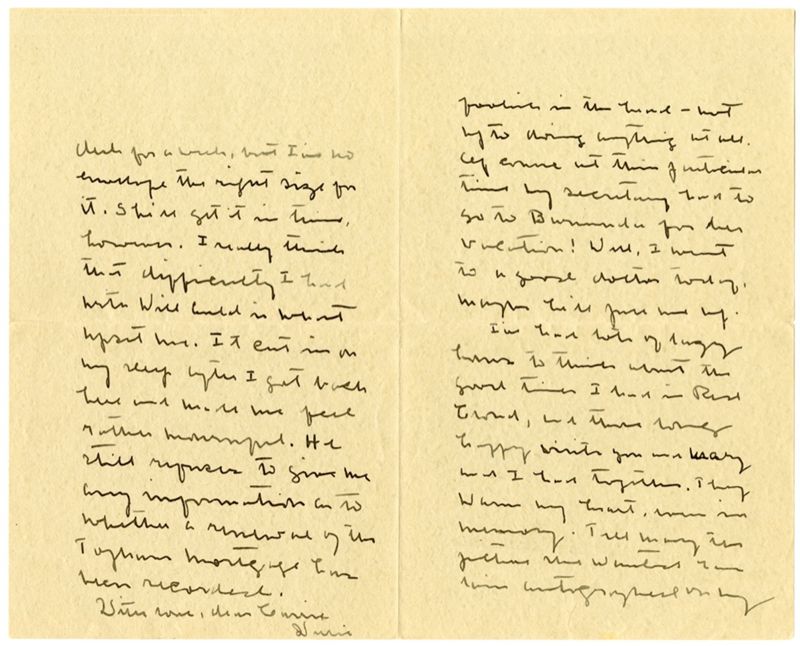 desk for a week, but I've no
envelope the right size for
it. She'll get it in time,
however. I really think
that difficulty I had
with Will Auld is what
upset me. It cut in on
my sleep after I got back
here and made me feel
rather mournful. He
still refuses to give me
any information as to
whether a renewal of the
mortgage has
been recorded.
With love, dear Carrie
Willie
in the head – not
up to doing anything at all.
Of course at this particular
time my secretary had to
go to Bermuda for her
vacation! Well, I went
to a good doctor today,
maybe he'll pull me up.
I've had lots of lazy
hours to think about the
good times I had in Red
Cloud, and those long
happy visits you and Mary
and I had together. They
warm my heart, even in
memory. Tell Mary the
picture she wanted has
been autographed on my